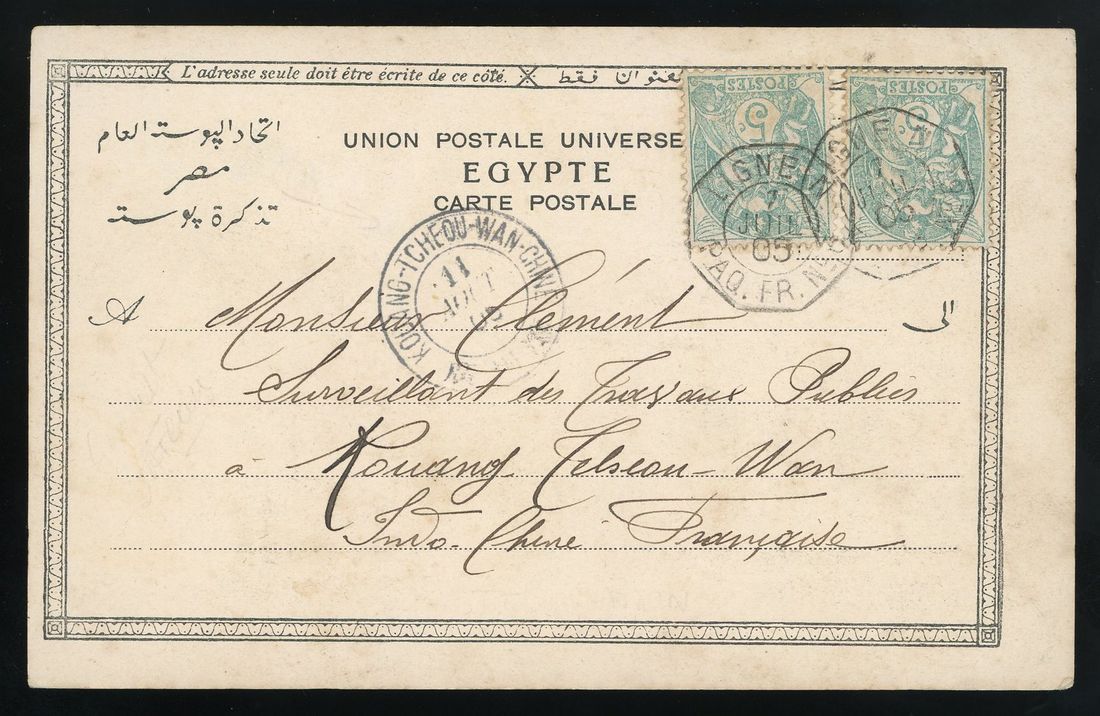 L'adresse seule doit être écrite de ce côté.
العنوان فقط
اتحاد البوسته العام
مصر
تذكرة بوسته
UNION POSTALE UNIVERSE
EGYPTE
CARTE POSTALE
POSTES
5
POSTES
5
LIGNE N
JUIL
05
PAQ. FR. N
LIGNE
JUIL
05
TCHEOU-WAN-CHINE
11
AOUT
05
A Monsieur Clément الى
Surveillant des Travaux Publics
à Kouang Tcheou-Wan
Indo-Chine Française